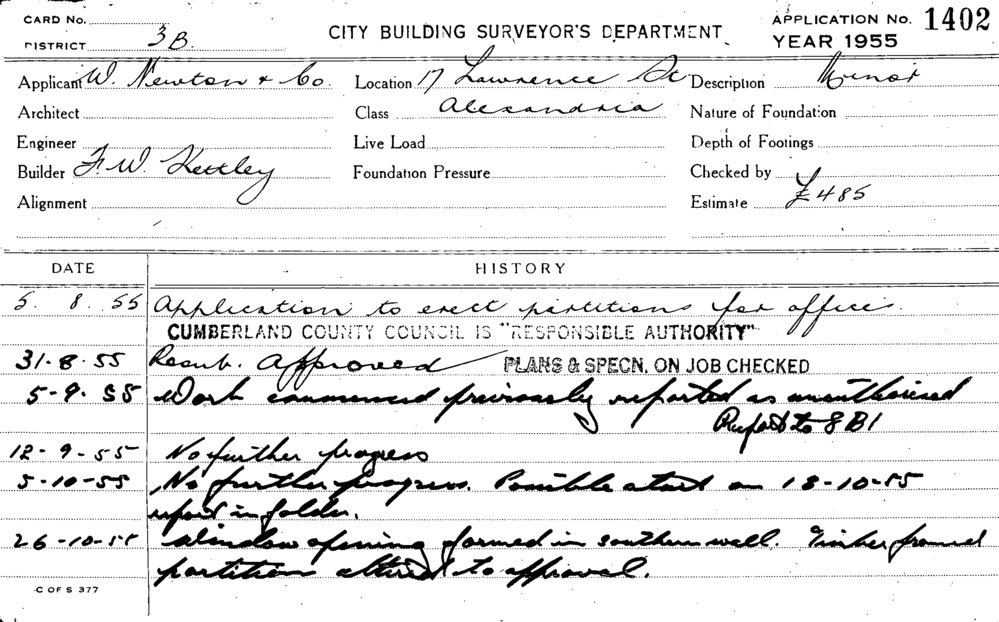 CARD No.
DISTRICT 3B.
CITY BUILDING SURVEYOR'S DEPARTMENT
APPLICATION No. 1402
YEAR 1955
Applicant W. Newton & Co. Location 17 Lawrence St Description Minor
Architect Class Alexandria Nature of Foundation
Engineer Live Load Depth of Footings
Builder F. W. Kettley Foundation Pressure Checked by
Alignment Estimate £485
DATE HISTORY
5. 8. 55 Application to erect partitions for offices.
CUMBERLAND COUNTY COUNCIL IS "RESPONSIBLE AUTHORITY"
31-8-55 Resub. Approved PLANS & SPECN. ON JOB CHECKED
5-9-55 Work commenced previously reported as unauthorised
Report to
12-9-55 No further progress
5-10-55 No further progress. Possible start on 18-10-55
report in folder.
26-10-55 Window opening formed in southern wall. Timber framed
partition altered to approval.
C OF S 377